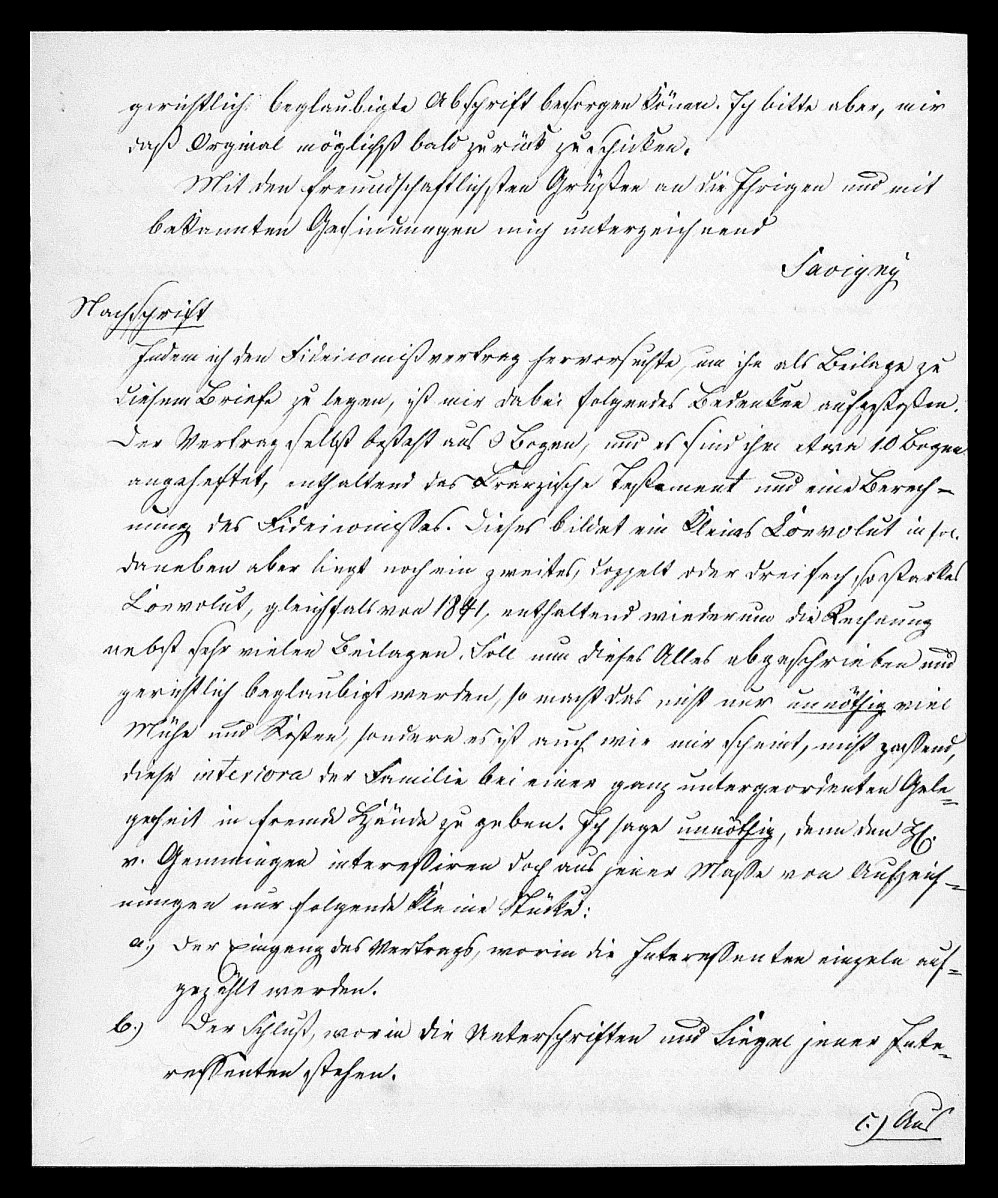 gerichtlich beglaubigte Abschrift besorgen können. Ich bitte aber, mir
daß Orginal möglichst bald zurück zu schicken.
Mit den freundschaftlichsten Grüßen an die Ihrigen und mit
bekannten Gesinnungen mich unterzeichnend
Savigny
Nachschrift
Indem ich den Fideicomißvertrag hervorsuchte, um ihn als Beilage zu
diesem Briefe zu legen, ist mir dabei folgendes Bedenken aufgestoßen.
Der Vertrag selbst besteht aus Bogen, und es sind ihm etwa 10 Bogen
angeheftet, enthaltend das Testament und eine Berech-
nung des Fideicomisses. Dieses bildet ein kleines Convolut in fol.
daneben aber liegt noch ein zweites, doppelt oder dreifach, so starkes
Convolut, gleichfals von 1841, enthaltend wiederum die Rechnung
nebst sehr vielen Beilagen. Soll nun dieses Alles abgeschrieben und
gerichtlich beglaubigt werden, so macht das nicht nur unnöthig viel
Mühe und Kosten, sondern es ist auch wie mir scheint, nicht passend,
diese interiora der Familie bei einer ganz untergeordenten Gele-
genheit in fremde Hände zu geben. Ich sage unnöthig, denn den H.
v. Gemmingen interessiren doch aus jener Masse von Aufzeich-
nungen nur folgende kleine Stücke:
a.) Der Eingang des Vertrags, worin die Interessenten einzeln auf-
gezählt werden.
b.) Der Schluß, worin die Unterschriften und Siegel jener Inte-
ressenten stehen.
c.) Aus